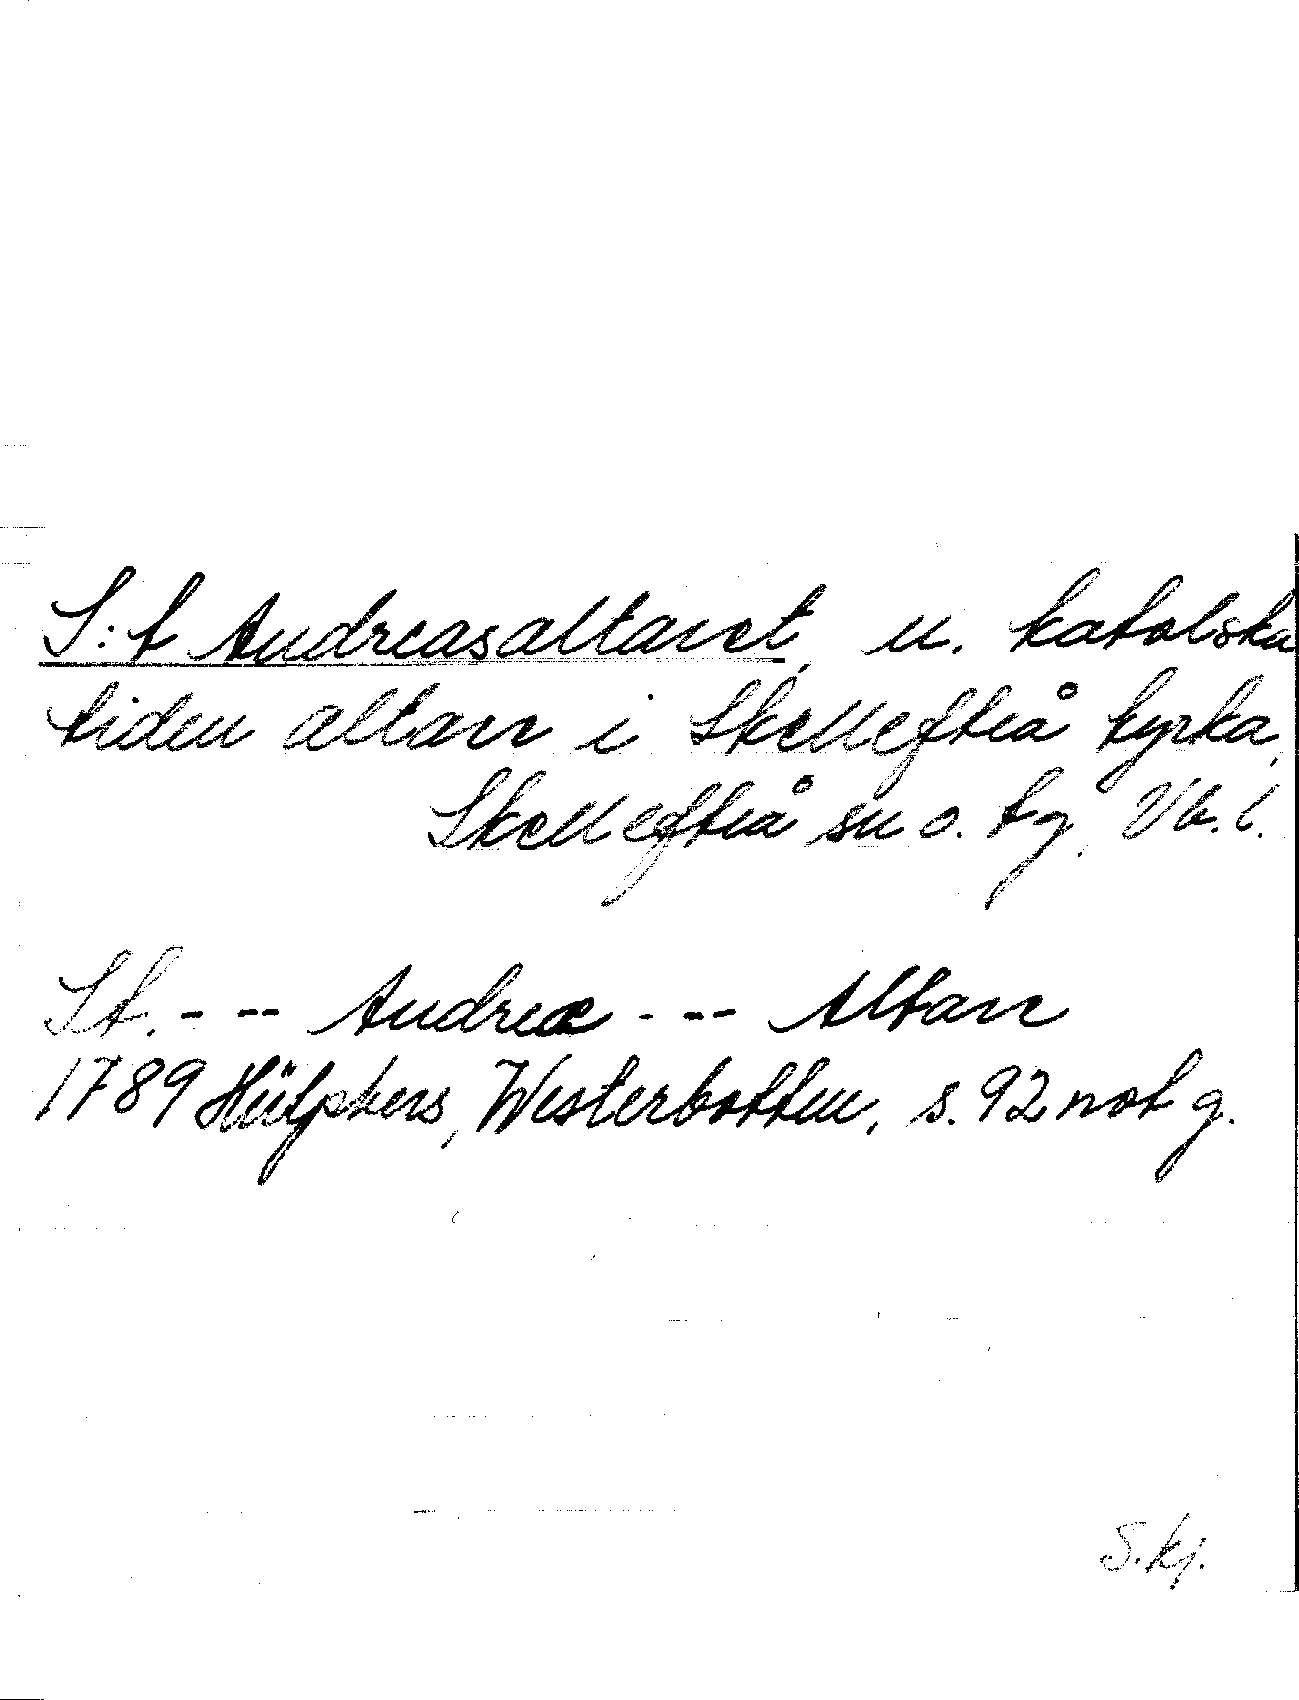 S:t Andreasaltaret, u. katolska
tiden altare i Skellefteå kyrka,
Skellefteå sn o. tg, Vb. l.
St. - -- Andreæ - -- Altare
1789 Hülphers, Westerbotten, s. 92 not g.
S.kj.